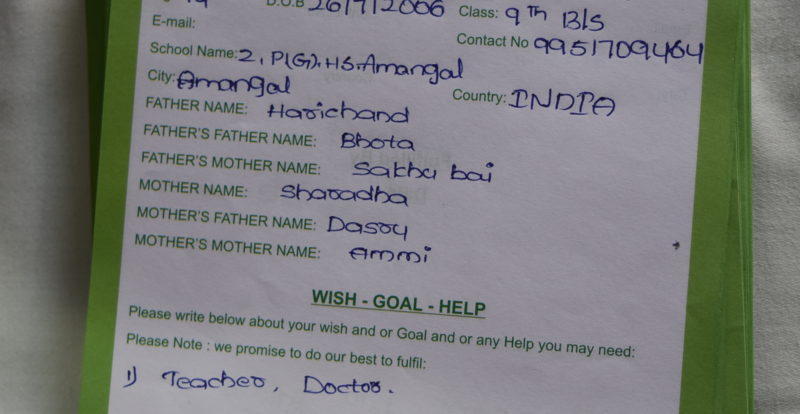 D.O.B 26/7/2006 Class: 9Th B/s
E-mail:
Contact No 9951709464
School Name: 2, P(G).H.S. Amangal
City: Amangal
Country: INDIA
FATHER NAME: Harichand
FATHER'S FATHER NAME: Bhota
FATHER'S MOTHER NAME: Sakhu bai
MOTHER NAME: Sharadha
MOTHER'S FATHER NAME: Dasry
MOTHER'S MOTHER NAME: Ammi
WISH - GOAL - HELP
Please write below about your wish and or Goal and or any Help you may need:
Please Note : we promise to do our best to fulfil:
1) Teacher, Doctor.